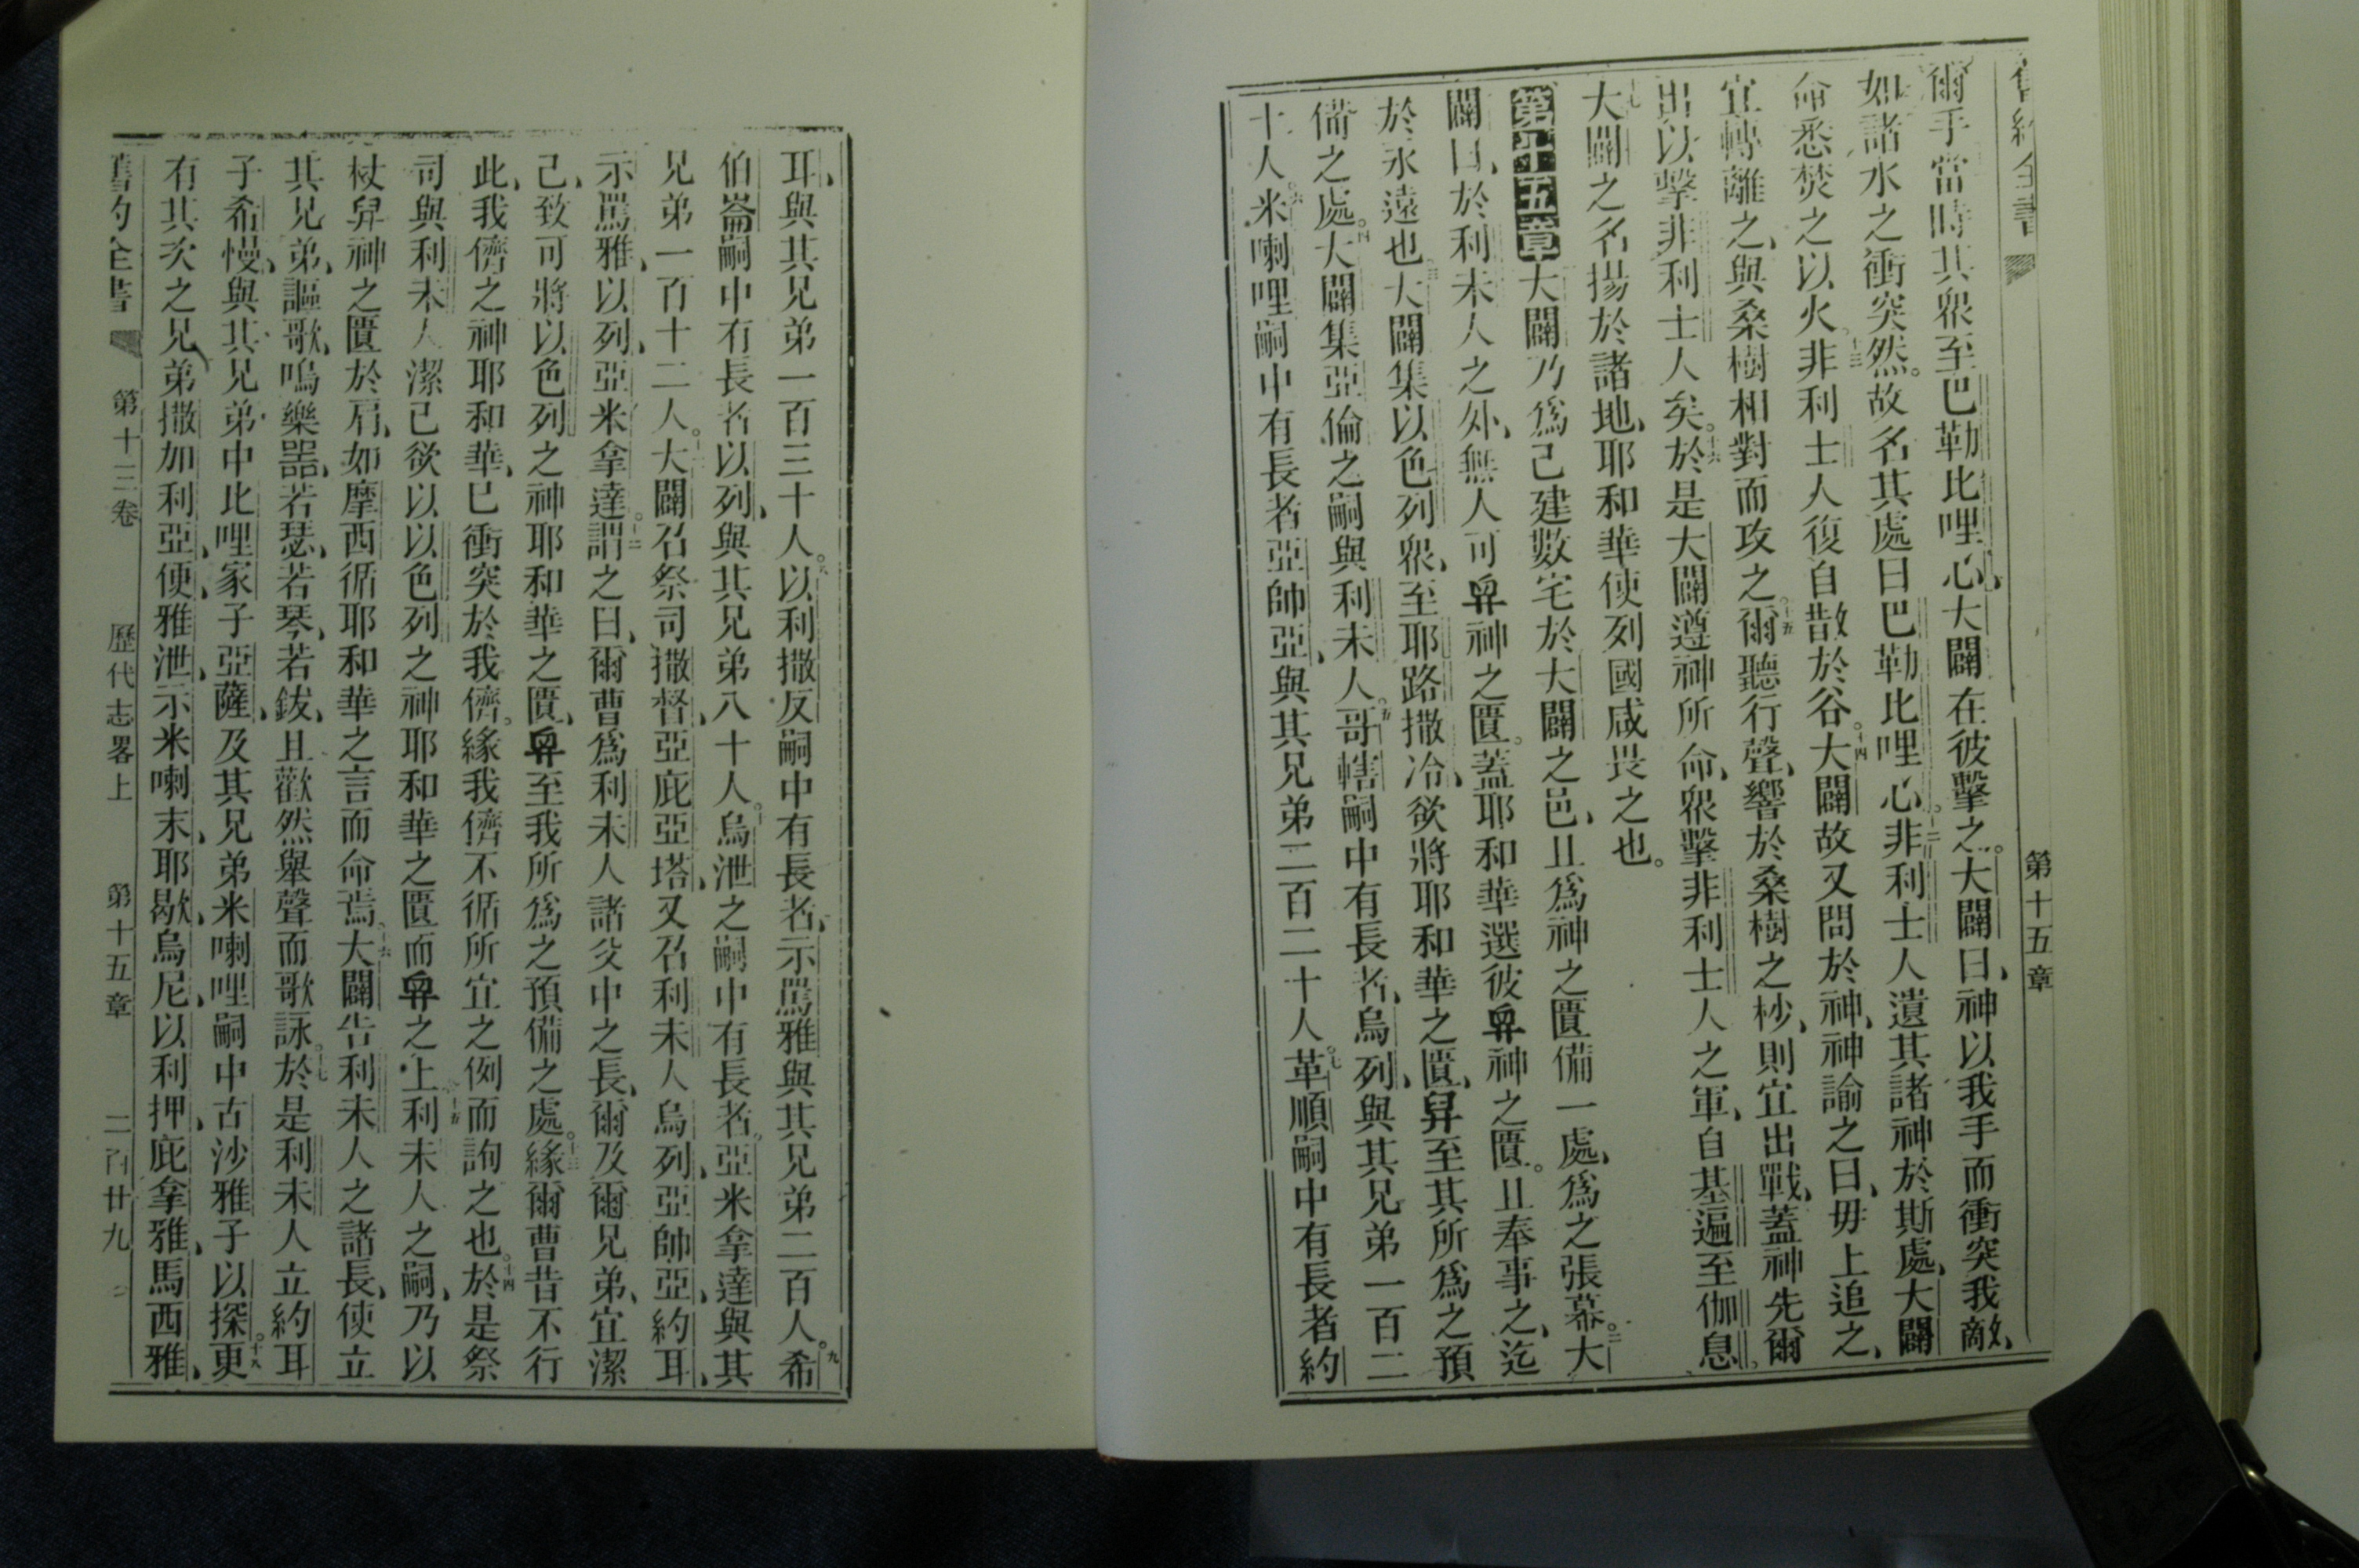 舊約全書 第十五章
爾手當時其眾至巴勒比哩心、大闢在彼擊之。大闢曰、神以我手而衝突我敵、
如諸水之衝突然。故名其處曰巴勒比哩心。十二非利士人遺其諸神於斯處、大闢
命悉焚之以火。十三非利士人復自散於谷。十四大闢故又問於神、神諭之曰、毋上追之、
宜轉離之、與桑樹相對而攻之。十五爾聽行聲、響於桑樹之杪、則宜出戰、蓋神先爾
出以擊非利士人矣。十六於是大闢遵神所命、眾擊非利士人之軍、自基遍至伽息。
十七大闢之名揚於諸地、耶和華使列國咸畏之也。
第十五章大闢乃爲己建數宅於大闢之邑、且爲神之匱備一處、爲之張幕。二大
闢曰、於利未人之外、無人可舁神之匱。蓋耶和華選彼舁神之匱。且奉事之、迄
於永遠也。三大闢集以色列眾、至耶路撒冷、欲將耶和華之匱、舁至其所爲之預
備之處。四大闢集亞倫之嗣與利未人。五哥轄嗣中有長者、烏列、與其兄弟一百二
十人。六米喇哩嗣中有長者亞帥亞、與其兄弟二百二十人。七革順嗣中有長者約
耳、與其兄弟一百三十人。八以利撒反嗣中有長者、示罵雅與其兄弟二百人。九希
伯崙嗣中有長者以列、與其兄弟八十人。十烏泄之嗣中有長者、亞米拿達與其
兄弟一百十二人。十一大闢召祭司撒督、亞庇亞塔、又召利未人烏列、亞帥亞、約耳、
示罵雅、以列、亞米拿達。十二謂之曰、爾曹爲利未人諸父中之長、爾及爾兄弟、宜潔
己、致可將以色列之神耶和華之匱、舁至我所爲之預備之處。十三緣爾曹昔不行
此、我儕之神耶和華、已衝突於我儕。緣我儕不循所宜之例而詢之也。十四於是祭
司與利未人潔己欲以以色列之神耶和華之匱而舁之上。十五利未人之嗣、乃以
杖舁神之匱於肩、如摩西循耶和華之言而命焉。十六大闢告利未人之諸長、使立
其兄弟、謳歌、鳴樂器、若瑟、若琴、若鈸、且歡然舉聲而歌詠。十七於是利未人立約耳
子希慢、與其兄弟中比哩家子亞薩、及其兄弟米喇哩嗣中古沙雅子以探。十八更
有其次之兄弟撒加利亞、便雅泄、示米喇末、耶歇、烏尼、以利押、庇拿雅、馬西雅、
舊約全書 第十三卷 歷代志畧上 第十五章 二百廿九